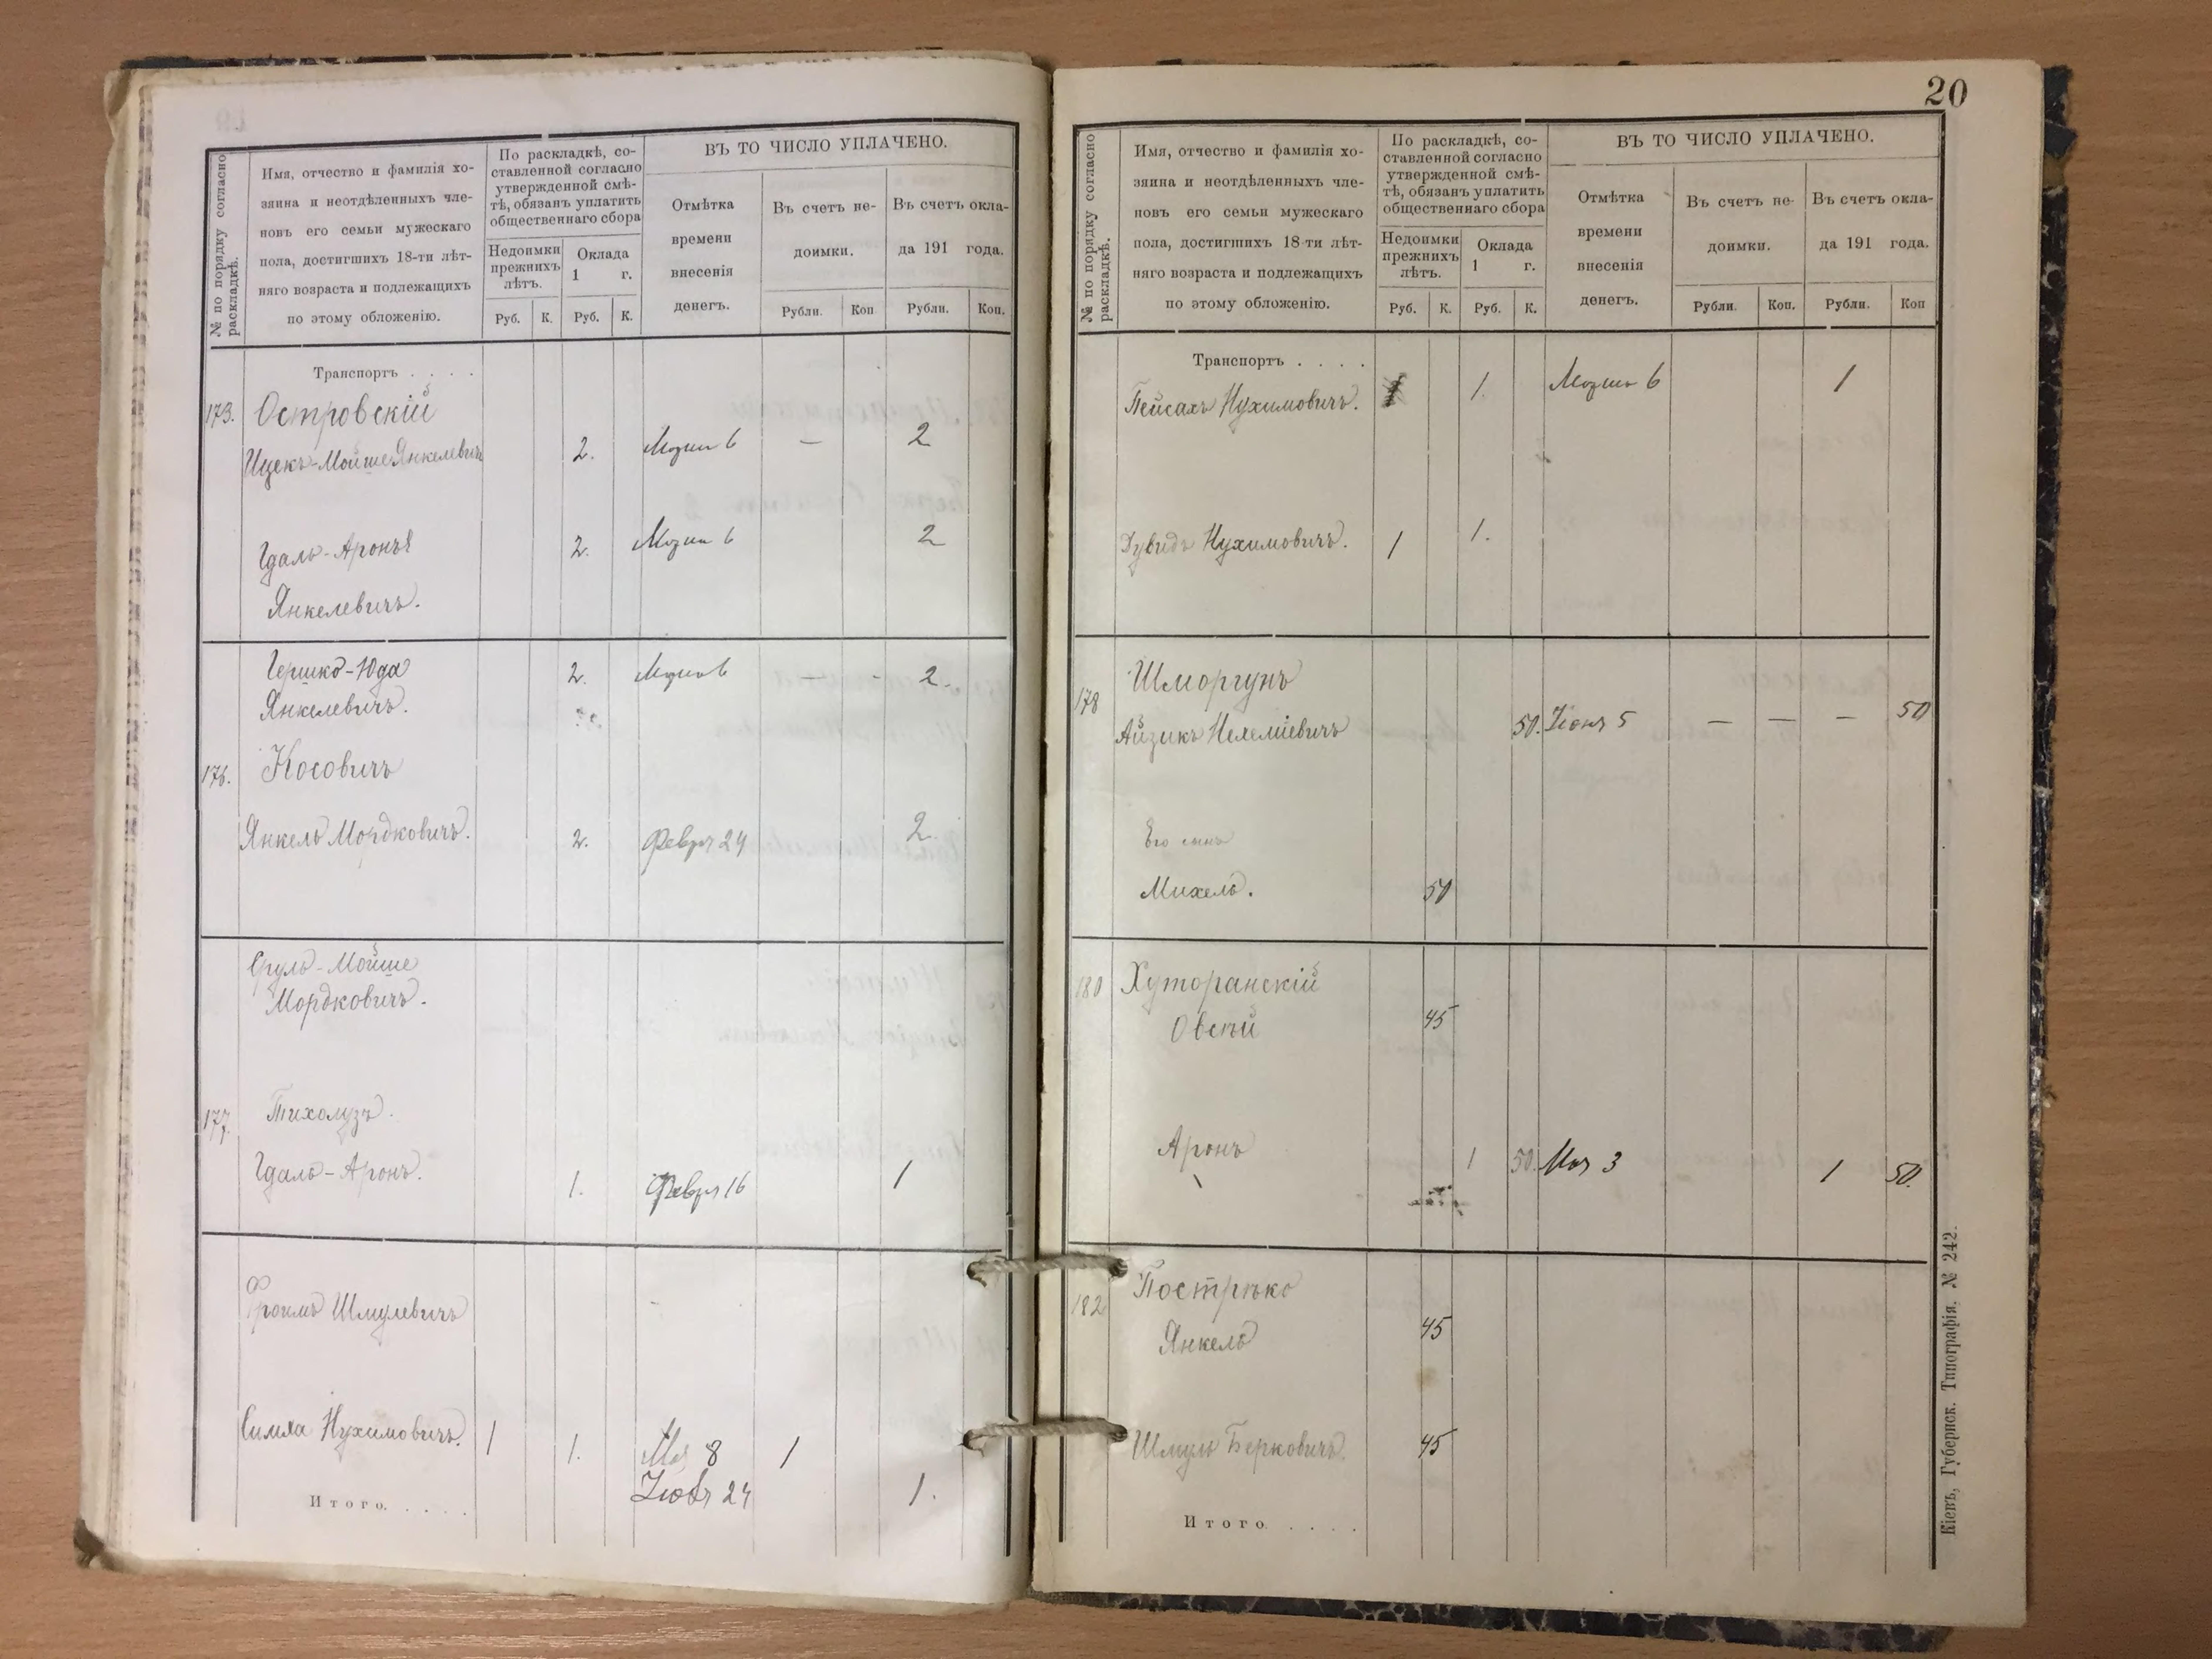 № по порядку согласно раскладкѣ.
Имя, отчество и фамилія хо-
зяина и неотдѣленныхъ чле-
новъ его семьи мужескаго
пола, достигшихъ 18-ти лѣт-
няго возраста и подлежащихъ
по этому обложенію.
По раскладкѣ, со-
ставленной согласно
утвержденной смѣ-
тѣ, обязанъ уплатить
общественнаго сбора
Недоимки
прежнихъ
лѣтъ.
Оклада
1 г.
Руб. К. Руб. К.
ВЪ ТО ЧИСЛО УПЛАЧЕНО.
Отмѣтка
времени
внесенія
денегъ.
Въ счетъ не-
доимки.
Въ счетъ окла-
да 191 года.
Рубли. Коп Рубли. Коп.
Транспортъ . . . .
173. Островскій
Ицекъ-Мойше Янкелевичъ 2. 6 — 2
Гдаль-Аронъ 2. 6 2
Янкелевичъ.
Гершко-Юда 2. 6 — - 2.
Янкелевичъ.
176. Косовичъ
Янкель Мордковичъ. 2. Февр 24 2.
Сруль-Мойше
Мордковичъ.
177. Тихолузъ.
Гдаль-Аронъ. 1. Февр 16 1
Фроимъ Шмулевичъ
Симха Нухимовичъ. 1 1. Мая 8 1
24 1.
Итого. . . . .
20
№ по порядку согласно раскладкѣ.
Имя, отчество и фамилія хо-
зяина и неотдѣленныхъ чле-
новъ его семьи мужескаго
пола, достигшихъ 18-ти лѣт-
няго возраста и подлежащихъ
по этому обложенію.
По раскладкѣ, со-
ставленной согласно
утвержденной смѣ-
тѣ, обязанъ уплатить
общественнаго сбора
Недоимки
прежнихъ
лѣтъ.
Оклада
1 г.
Руб. К. Руб. К.
ВЪ ТО ЧИСЛО УПЛАЧЕНО.
Отмѣтка
времени
внесенія
денегъ.
Въ счетъ не-
доимки.
Въ счетъ окла-
да 191 года.
Рубли. Коп. Рубли. Коп
Транспортъ . . . .
Пейсахъ Нухимовичъ. 1. 6 1
Дувидъ Нухимовичъ. 1 1.
178 Шморгунъ
Айзикъ Нехеміевичъ 50. Іюня 5 — — — 50
Его сынъ
Михель. 50
180 Хуторанскій
Овсѣй 45
Аронъ 1 50. Мая 3 1 50.
182 Пострѣко
Янкель 45
Шмуль Берковичъ. 45
Итого . . . .
Кіевъ, Губернск. Типографія. № 242.